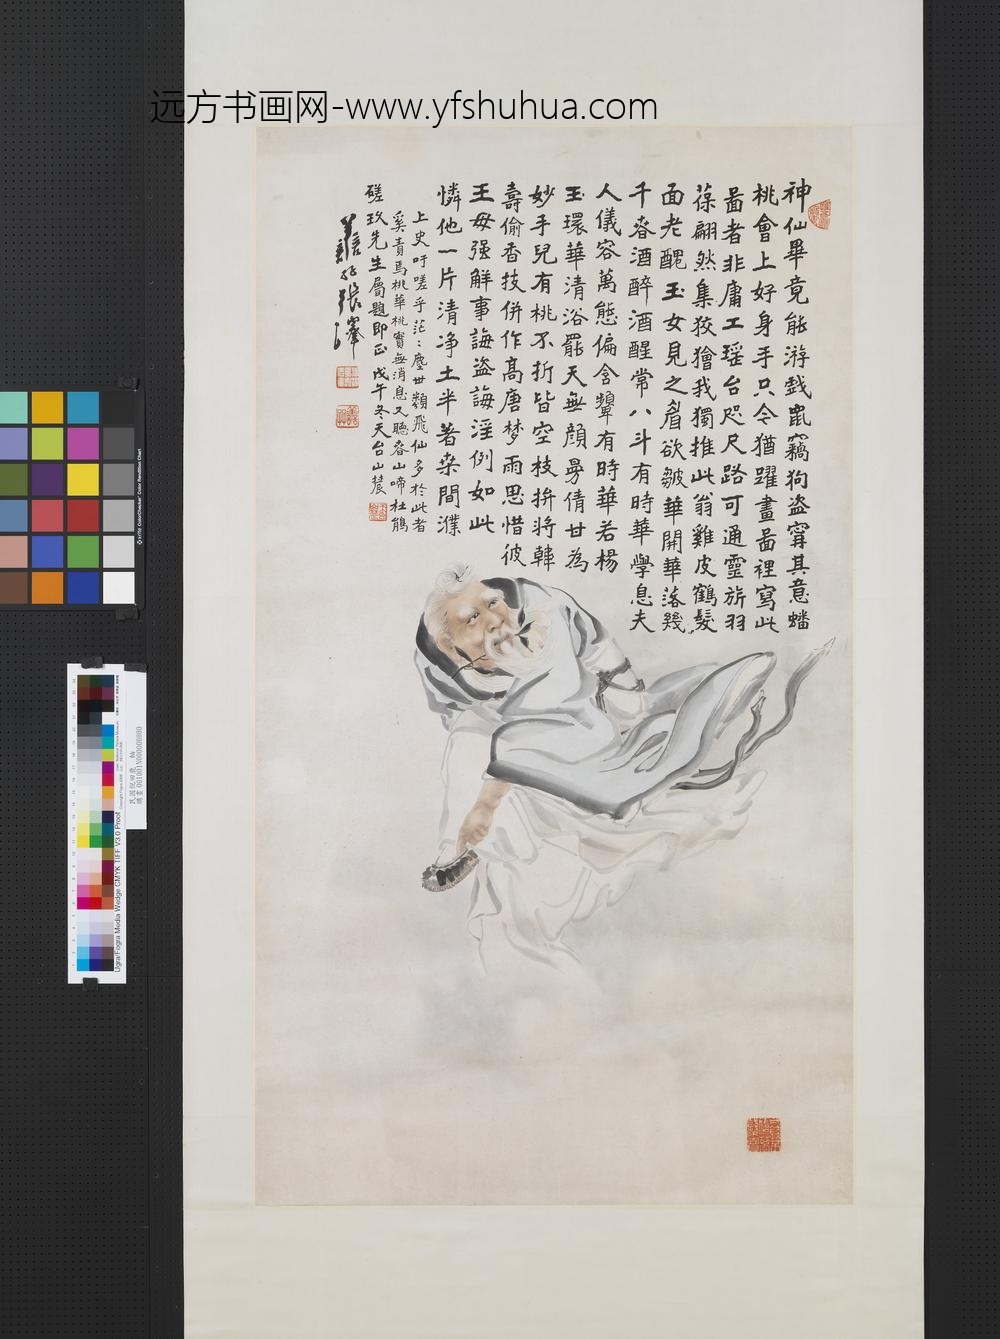 远方书画网-www.yfshuhua.com
神仙畢竟能游戲鼠竊狗盜甯其意蟠
桃會上好身手只今猶躍畫啚裡寫此
啚者非庸工瑶台咫尺路可通靈旂羽
葆翩然集狡獪我獨推此翁雞皮鶴髮
面老醜玉女見之眉欲皺華開華落幾
千春酒醉酒醒常八斗有時華學息夫
人儀容萬態偏含顰有時華若楊
玉環華清浴罷天無顔曼倩甘為
妙手兒有桃不折皆空枝拚將韓
壽偷香技併作高唐梦雨思惜彼
王母强解事誨盜誨淫例如此
憐他一片清净土半著桒間濮
上史吁嗟乎茫〻塵世類飛仙多於此者
奚責焉桃華桃實無消息又聽春山啼杜鵑
磋玖先生屬題即正戊午冬天台山農
Ugra/Fogra Media Wedge CMYK TIFF V3.0 Proof